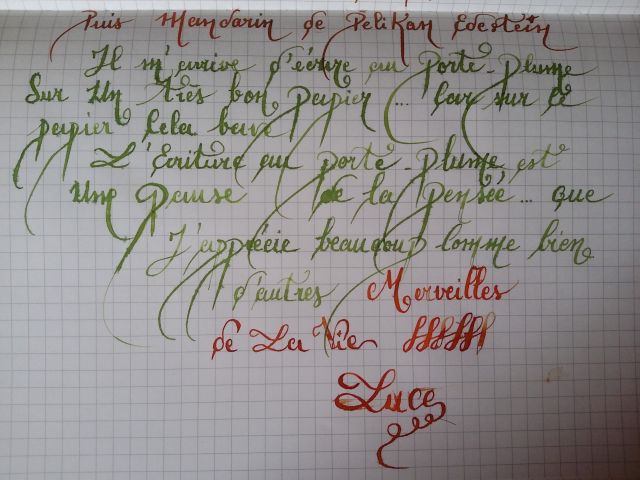 Puis Mandarin de Pelikan Edestein
Il m'arrive d'écrire au porte-plume
Sur Un très bon papier... Car sur ce
papier Cela bave
L'Ecriture au porte-plume est
Une pause de la pensée... que
J'apprécie beaucoup Comme bien
d'autres Merveilles
de La Vie
Luce